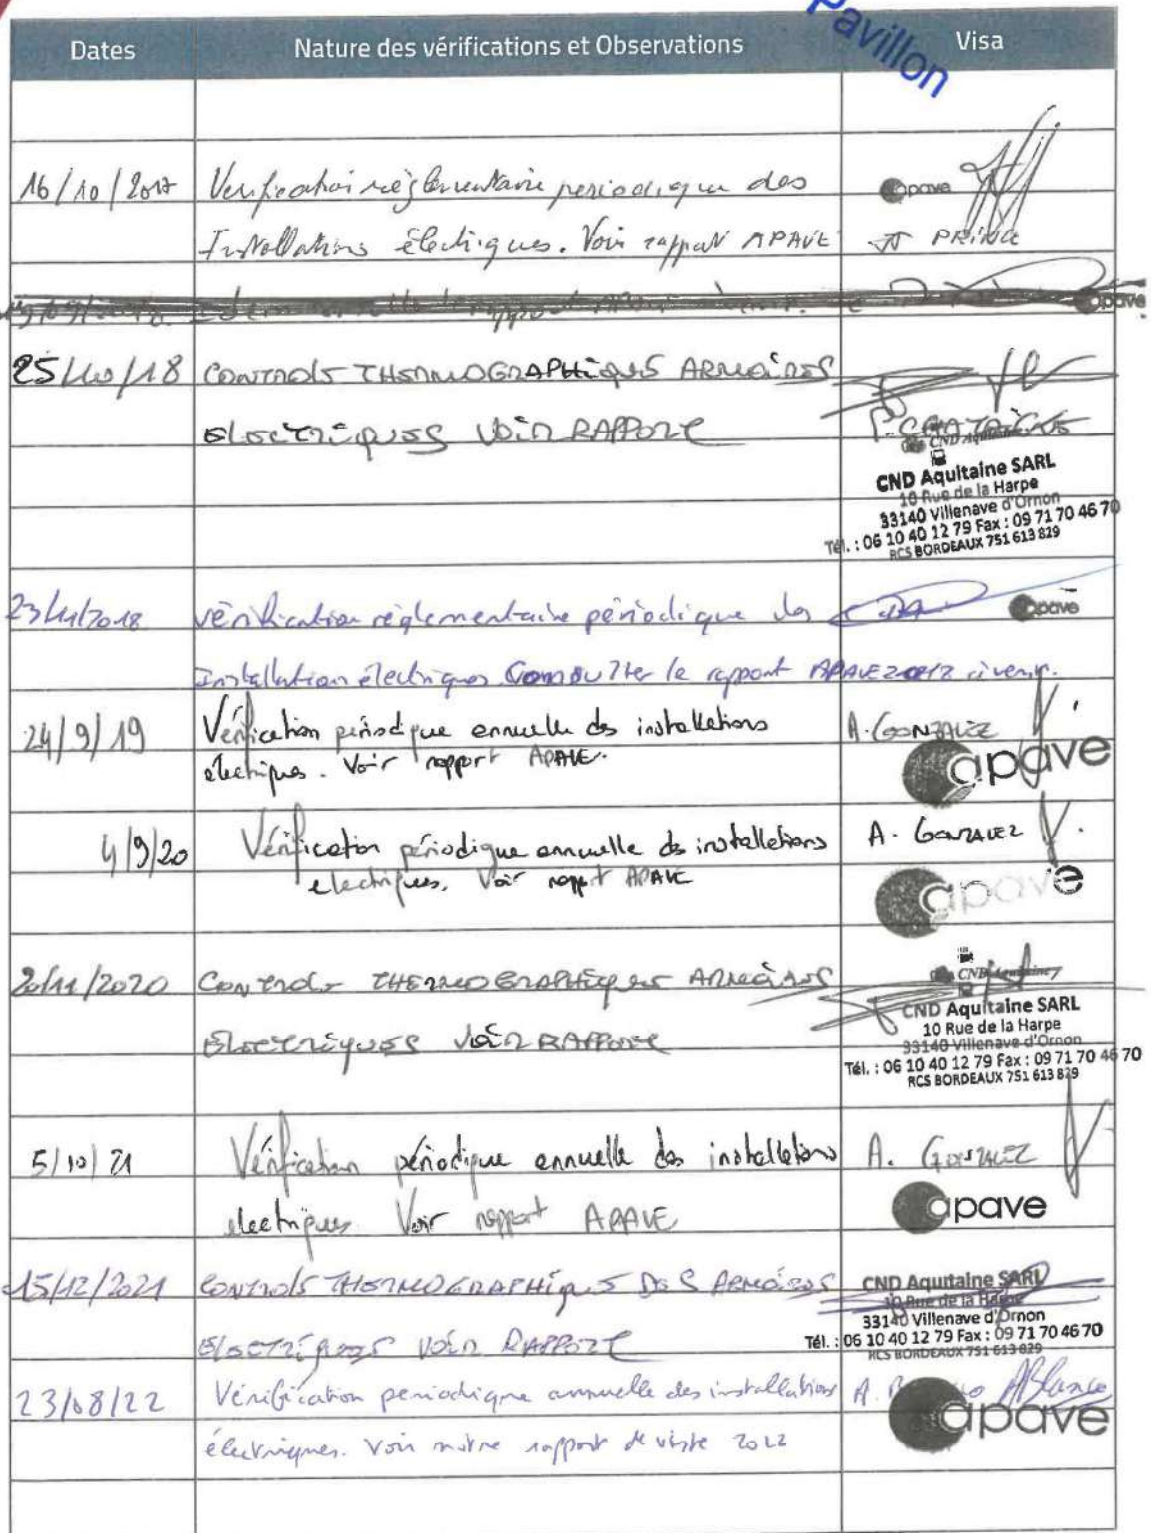 Pavillon
Dates Nature des vérifications et Observations Visa
16/10/2017 Verification règlementaire periodique des apave
Installations électriques. Voir rapport APAVE PRINCE
apave
25/10/18 CONTROLS THERMOGRAPHIQUES ARMOIRES
ELECTRIQUES VOIR RAPPORT
CND Aquitaine
CND Aquitaine SARL
10 Rue de la Harpe
33140 Villenave d'Ornon
Tél. : 06 10 40 12 79 Fax : 09 71 70 46 70
RCS BORDEAUX 751 613 829
23/11/2018 vérification réglementaire périodique des apave
Installation électriques Consulter le rapport APAVE à venir.
24/9/19 Vérification périodique annuelle des installations A. GONZALEZ
électriques. Voir rapport APAVE. apave
4/9/20 Vérification périodique annuelle des installations A. GONZALEZ
electriques. Voir rappt APAVE apave
2/11/2020 CONTROLS THERMOGRAPHIQUES ARMOIRES CND Aquitaine
ELECTRIQUES VOIR RAPPORT CND Aquitaine SARL
10 Rue de la Harpe
33140 Villenave d'Ornon
Tél. : 06 10 40 12 79 Fax : 09 71 70 46 70
RCS BORDEAUX 751 613 829
5/10/21 Vérification périodique annuelle des installations A. GONZALEZ
electriques Voir rapport APAVE apave
15/12/2021 CONTROLS THERMOGRAPHIQUES DES ARMOIRES CND Aquitaine SARL
10 Rue de la Harpe
33140 Villenave d'Ornon
ELECTRIQUES VOIR RAPPORT Tél. : 06 10 40 12 79 Fax : 09 71 70 46 70
RCS BORDEAUX 751 613 829
23/08/22 Vérification periodique annuelle des installations A. ABlanco
électriques. Voir notre rapport de visite 2022 apave